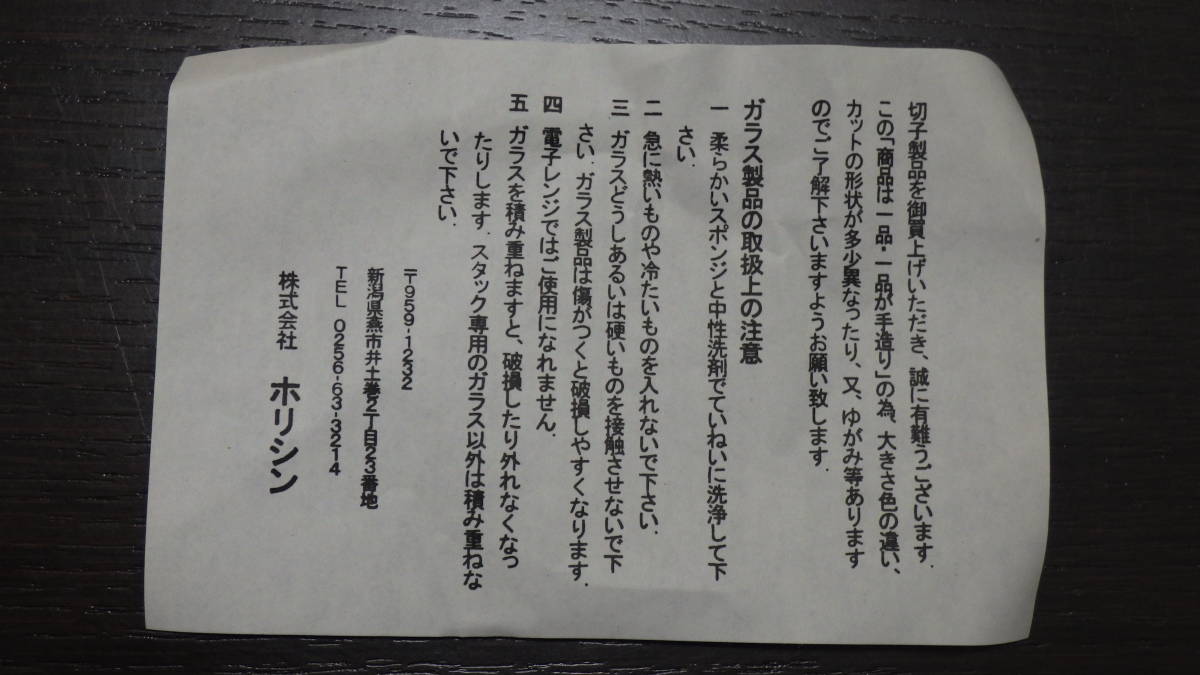 切子製品を御買上げいただき、誠に有難うございます.
この「商品は一品・一品が手造り」の為、大きさ色の違い、
カットの形状が多少異なったり、又、ゆがみ等あります
のでご了解下さいますようお願い致します.
ガラス製品の取扱上の注意
一 柔らかいスポンジと中性洗剤でていねいに洗浄して下
さい.
二 急に熱いものや冷たいものを入れないで下さい.
三 ガラスどうしあるいは硬いものを接触させないで下
さい. ガラス製品は傷がつくと破損しやすくなります.
四 電子レンジではご使用になれません.
五 ガラスを積み重ねますと、破損したり外れなくなっ
たりします. スタック専用のガラス以外は積み重ねな
いで下さい.
〒959-1232
新潟県燕市井土巻2丁目23番地
TEL 0256-63-3214
株式会社 ホリシン